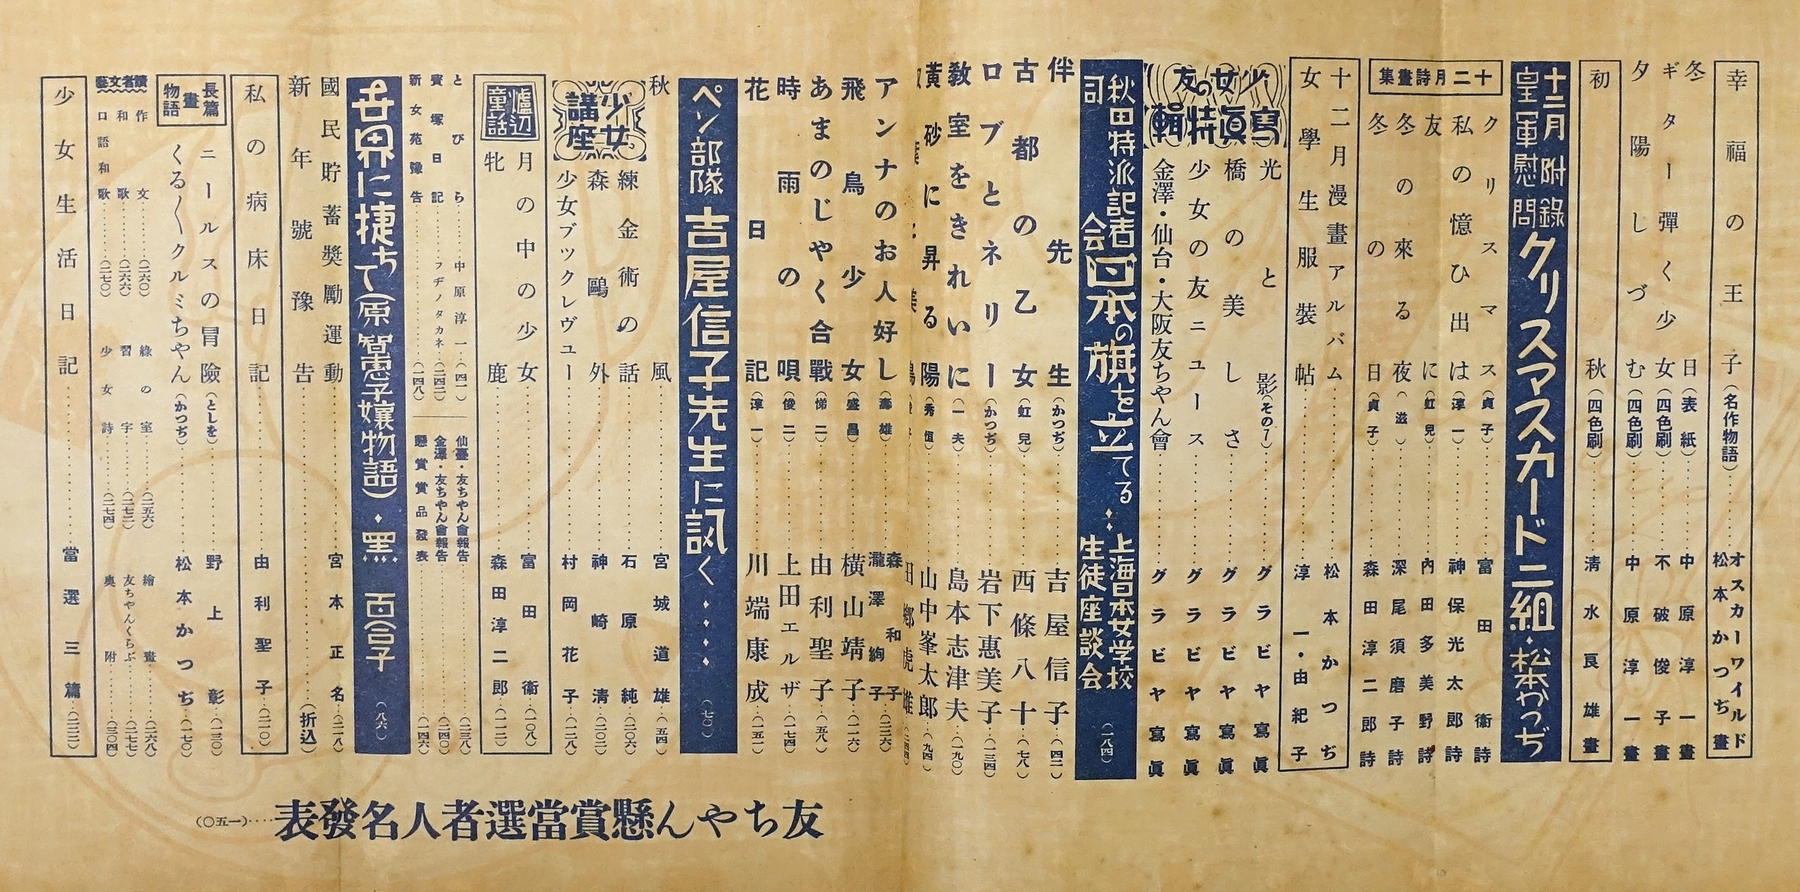 幸福の王子(名作物語)……オスカーワイルド 松本かつぢ畫
冬日(表紙)……中原淳一畫
ギター彈く少女(四色刷)……不破俊子畫
夕陽しづむ(四色刷)……中原淳一畫
初秋(四色刷)……清水良雄畫
十二月附錄 皇軍慰問 クリスマスカード二組・松本かつぢ
十二月詩畫集
クリスマス(貞子)……富田衞詩
私の憶ひ出は(淳一)……神保光太郎詩
友に(虹兒)……内田多美野詩
冬の來る夜(滋)……深尾須磨子詩
冬の日(貞子)……森田淳二郎詩
十二月漫畫アルバム……松本かつぢ
女學生服裝帖……淳一・由紀子
少女の友 寫眞特輯
光と影(その7)……グラビヤ寫眞
橋の美しさ……グラビヤ寫眞
少女の友ニュース……グラビヤ寫眞
金澤・仙台・大阪友ちゃん會……グラビヤ寫眞
秋田特派記者司会 日本の旗を立てる…上海日本女学校生徒座談会(一八四)
伴先生(かつぢ)……吉屋信子(四二)
古都の乙女(虹兒)……西條八十(七八)
ロブとネリー(かつぢ)……岩下惠美子(一三四)
教室をきれいに(一夫)……島本志津夫(一九〇)
黄砂に昇る陽(秀恆)……山中峯太郎(九四)
アンナのお人好し(壽雄)……森和子 瀧澤絢子(二三六)
飛鳥少女(盛昌)……横山靖子(二一六)
あまのじやく合戰(悌二)……由利聖子(五八)
時雨の唄(俊二)……上田エルザ(一七四)
花日記(淳一)……川端康成(一五二)
ペン部隊 吉屋信子先生に訊く……(七〇)
秋風……宮城道雄(五四)
少女講座
練金術の話……石原純(二〇六)
森鷗外……神崎清(二〇二)
少女ブックレヴュー……村岡花子(一二八)
爐辺童話
月の中の少女……富田衞(一〇八)
牝鹿……森田淳二郎(一一二)
とびら……中原淳一(四一)
寳塚日記……フヂノタカネ(二四二)
新女苑豫告……(一四八)
仙臺・友ちやん會報告……(二三八)
金澤・友ちやん會報告……(二四〇)
懸賞賞品發表……(一四六)
世界に捷ちて(原智恵子嬢物語)・黑百合子(八六)
國民貯蓄奬勵運動……宮本正名(二一八)
新年號豫告……(折込)
私の病床日記……由利聖子(二二〇)
長篇畫物語
ニールスの冒險(としを)……野上彰(一三〇)
くるくクルミちやん(かつぢ)……松本かつぢ(一七〇)
讀者文藝
作文……(二六〇)
和歌……(二六六)
口語和歌……(二七〇)
綠の室……(二五六)
習字……(二七二)
少女詩……(二七四)
繪畫……(二六八)
友ちやんくらぶ……(二七七)
奥附……(三〇四)
少女生活日記……當選三篇(二二二)
友ちやん懸賞當選者人名發表……(一五〇)